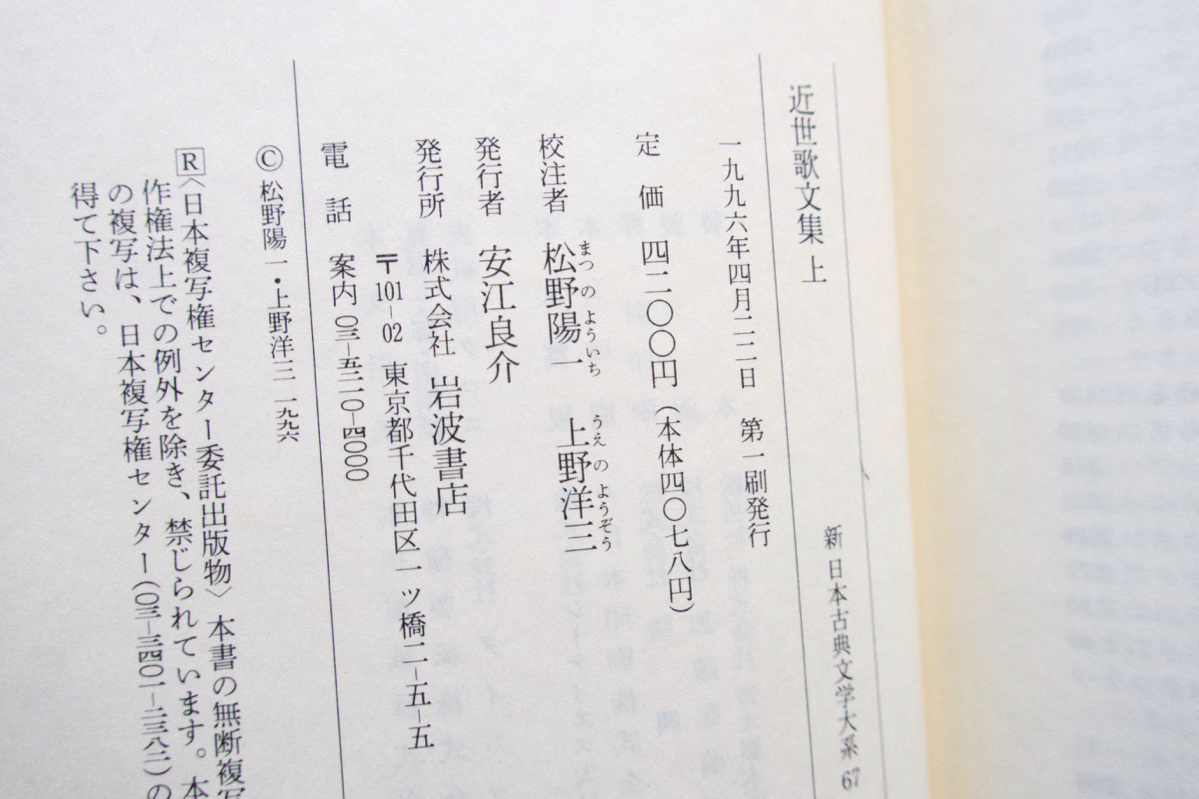 近世歌文集 上
新 日本古典文学大系 67
一九九六年四月二二日 第一刷発行
定 価 四二〇〇円(本体四〇七八円)
まつ の よういち うえ の ようぞう
校注者 松野陽一 上野洋三
発行者 安江良介
発行所 株式会社 岩波書店
〒101-02 東京都千代田区一ツ橋二-五-五
電 話 案内 〇三-五二一〇-四〇〇〇
© 松野陽一・上野洋三 一九九六
R〈日本複写権センター委託出版物〉 本書の無断複写
作権法上での例外を除き、禁じられています。本
の複写は、日本複写権センター(〇三-三四〇一-二三八二)の
得て下さい。